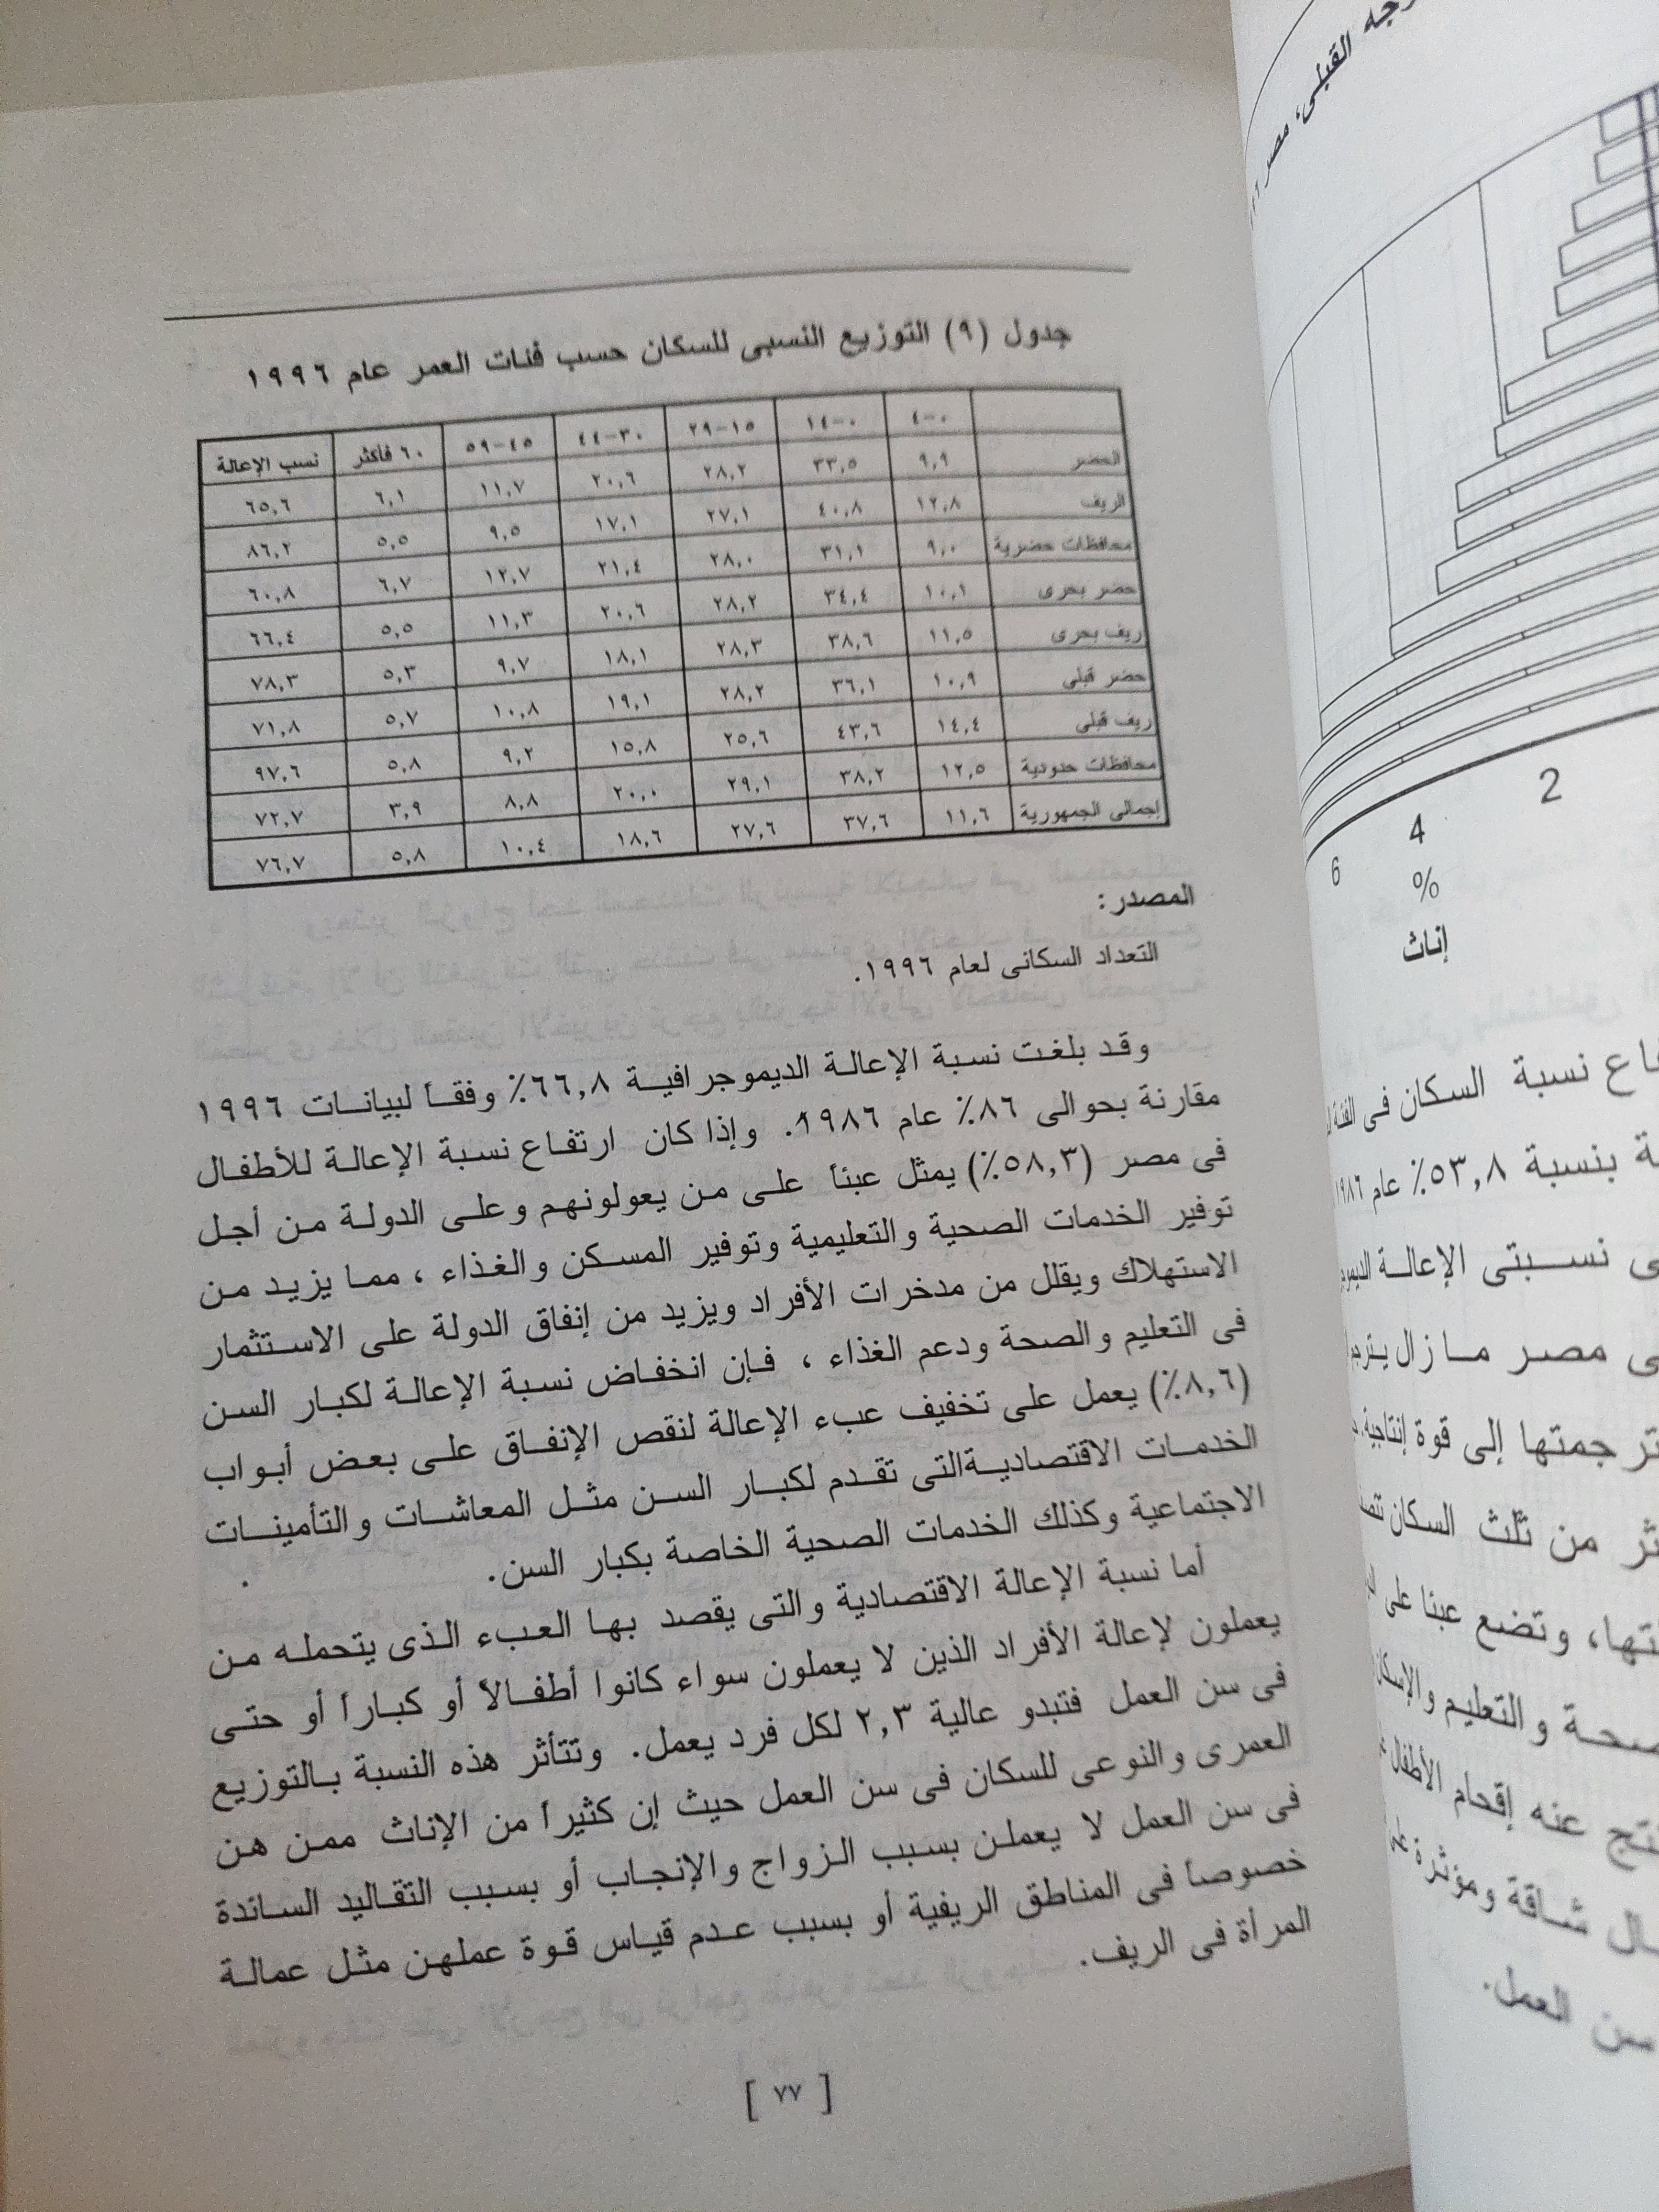 جدول (٩) التوزيع النسبى للسكان حسب فئات العمر عام ١٩٩٦
٠-٤ ٠-١٤ ١٥-٢٩ ٣٠-٤٤ ٤٥-٥٩ ٦٠ فأكثر نسب الإعالة
الحضر ٩,٩ ٣٣,٥ ٢٨,٢ ٢٠,٦ ١١,٧ ٦,١ ٦٥,٦
الريف ١٢,٨ ٤٠,٨ ٢٧,١ ١٧,١ ٩,٥ ٥,٥ ٨٦,٢
محافظات حضرية ٩,٠ ٣١,١ ٢٨,٠ ٢١,٤ ١٢,٧ ٦,٧ ٦٠,٨
حضر بحرى ١٠,١ ٣٤,٤ ٢٨,٢ ٢٠,٦ ١١,٣ ٥,٥ ٦٦,٤
ريف بحرى ١١,٥ ٣٨,٦ ٢٨,٣ ١٨,١ ٩,٧ ٥,٣ ٧٨,٣
حضر قبلى ١٠,٩ ٣٦,١ ٢٨,٢ ١٩,١ ١٠,٨ ٥,٧ ٧١,٨
ريف قبلى ١٤,٤ ٤٣,٦ ٢٥,٦ ١٥,٨ ٩,٢ ٥,٨ ٩٧,٦
محافظات حدودية ١٢,٥ ٣٨,٢ ٢٩,١ ٢٠,٠ ٨,٨ ٣,٩ ٧٢,٧
إجمالى الجمهورية ١١,٦ ٣٧,٦ ٢٧,٦ ١٨,٦ ١٠,٤ ٥,٨ ٧٦,٧
المصدر:
التعداد السكانى لعام ١٩٩٦.
وقد بلغت نسبة الإعالة الديموجرافية ٦٦,٨٪ وفقاً لبيانات ١٩٩٦
مقارنة بحوالى ٨٦٪ عام ١٩٨٦. وإذا كان ارتفاع نسبة الإعالة للأطفال
فى مصر (٥٨,٣٪) يمثل عبئاً على من يعولونهم وعلى الدولة من أجل
توفير الخدمات الصحية والتعليمية وتوفير المسكن والغذاء ، مما يزيد من
الاستهلاك ويقلل من مدخرات الأفراد ويزيد من إنفاق الدولة على الاستثمار
فى التعليم والصحة ودعم الغذاء ، فإن انخفاض نسبة الإعالة لكبار السن
(٨,٦٪) يعمل على تخفيف عبء الإعالة لنقص الإنفاق على بعض أبواب
الخدمات الاقتصاديةالتى تقدم لكبار السن مثل المعاشات والتأمينات
الاجتماعية وكذلك الخدمات الصحية الخاصة بكبار السن.
أما نسبة الإعالة الاقتصادية والتى يقصد بها العبء الذى يتحمله من
يعملون لإعالة الأفراد الذين لا يعملون سواء كانوا أطفالاً أو كباراً أو حتى
فى سن العمل فتبدو عالية ٢,٣ لكل فرد يعمل. وتتأثر هذه النسبة بالتوزيع
العمرى والنوعى للسكان فى سن العمل حيث إن كثيراً من الإناث ممن هن
فى سن العمل لا يعملن بسبب الزواج والإنجاب أو بسبب التقاليد السائدة
خصوصاً فى المناطق الريفية أو بسبب عدم قياس قوة عملهن مثل عمالة
المرأة فى الريف.
[ ٧٧ ]
القبلى، مصر
6 4 2
%
إناث
نسبة السكان فى الفئة
بنسبة ٥٣,٨٪ عام ١٩٨٦
نسبتى الإعالة
مصر مازال
ترجمتها إلى قوة إنتاجية
من ثلث السكان
وتضع عبئا على
والتعليم والإسكان
عنه إقحام الأطفال
شاقة ومؤثرة
العمل.